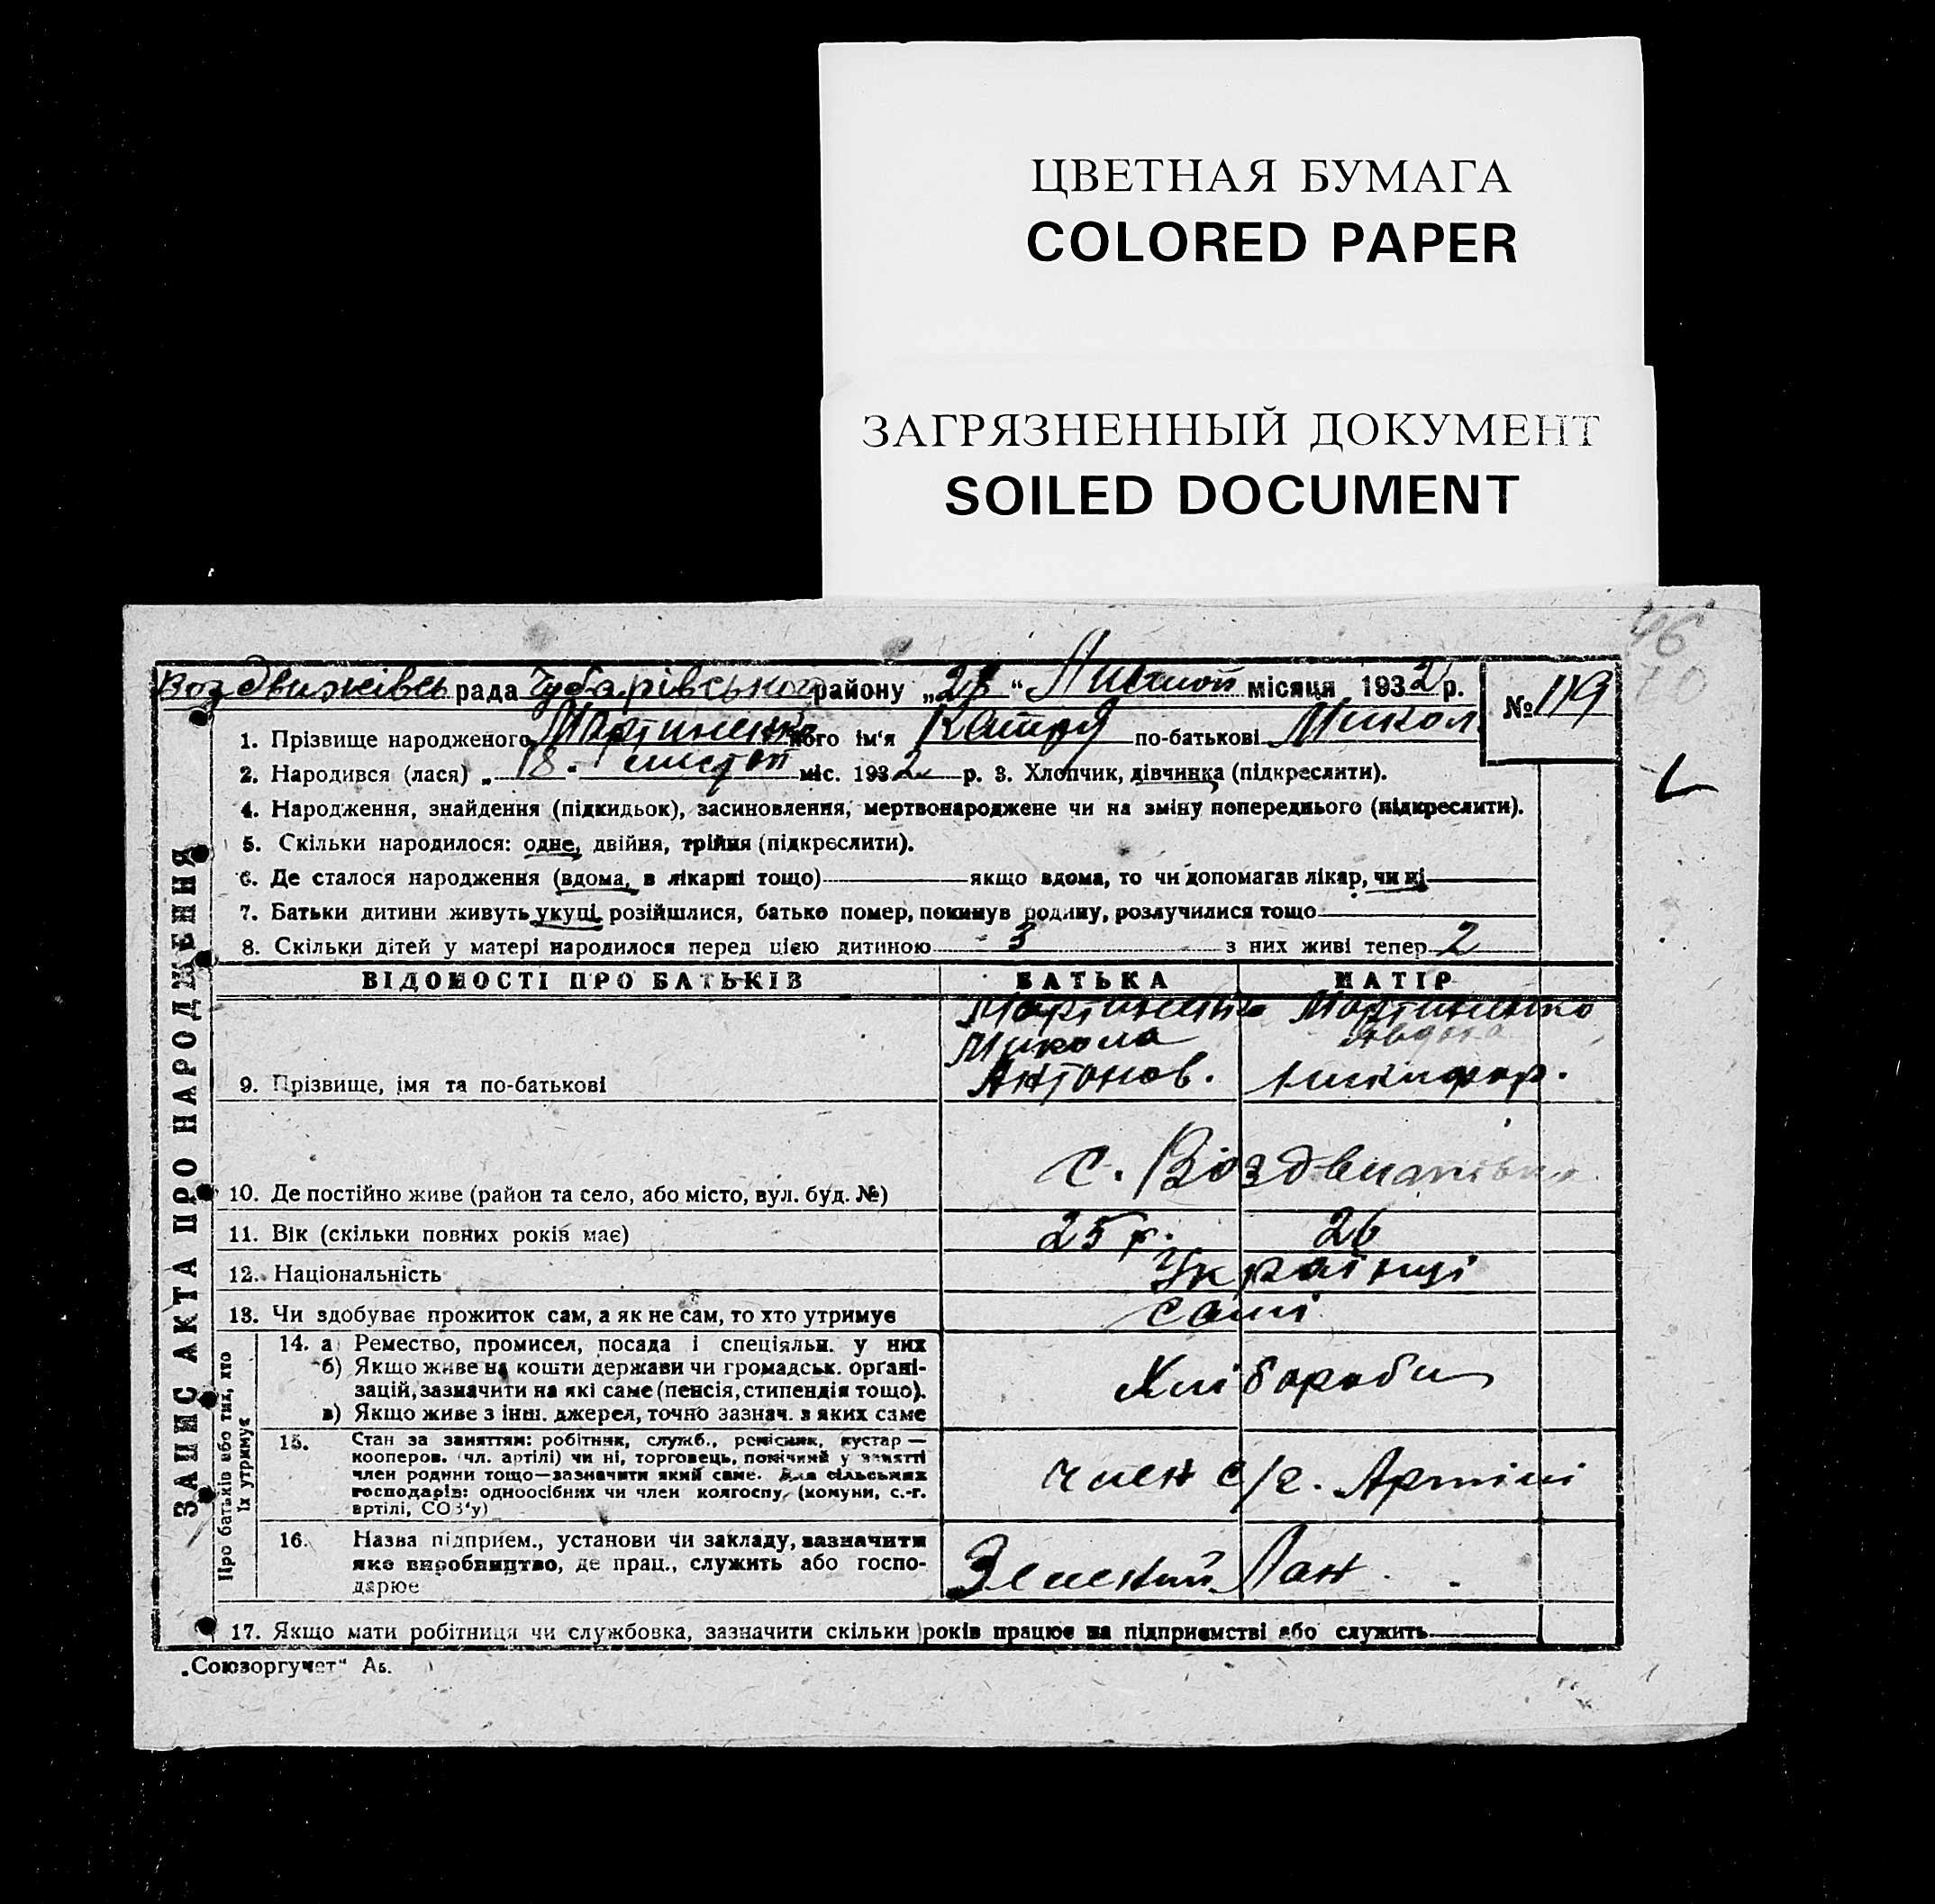 ЦВЕТНАЯ БУМАГА
COLORED PAPER
ЗАГРЯЗНЕННЫЙ ДОКУМЕНТ
SOILED DOCUMENT
46
70
Воздвижівсь рада Чубарівського району „28“ Листоп місяця 1932 р. № 119
1. Прізвище народженого Мартиненко його ім'я Катря по-батькові Микол.
2. Народився (лася) „18“ листоп міс. 1932 р. 3. Хлопчик, дівчинка (підкреслити).
4. Народження, знайдення (підкидьок), засиновлення, мертвонароджене чи на зміну попереднього (підкреслити).
5. Скільки народилося: одне, двійня, трійня (підкреслити).
6. Де сталося народження (вдома, в лікарні тощо) якщо вдома, то чи допомагав лікар, чи ні
7. Батьки дитини живуть укупі, розійшлися, батько помер, покинув родину, розлучилися тощо
8. Скільки дітей у матері народилося перед цією дитиною 3 з них живі тепер 2
ЗАПИС АКТА ПРО НАРОДЖЕННЯ
ВІДОМОСТІ ПРО БАТЬКІВ БАТЬКА МАТІР
Мартиненко Мартиненко
Микола Авдотя
9. Прізвище, імя та по-батькові Антонов. Никифор.
10. Де постійно живе (район та село, або місто, вул. буд. №) с. Воздвижівка
11. Вік (скільки повних років має) 25 р. 26
12. Національність Українці
13. Чи здобуває прожиток сам, а як не сам, то хто утримує самі
Про батьків або тих, хто
їх утримує
14. а) Ремество, промисел, посада і спеціяльн. у них
б) Якщо живе на кошти держави чи громадськ. органі-
зацій, зазначити на які саме (пенсія, стипендія тощо).
в) Якщо живе з інш. джерел, точно зазнач. з яких саме
Хлібороби
15. Стан за заняттям: робітник, служб., ремісник, кустар —
кооперов. (чл. артілі) чи ні, торговець, помічний у занятті
член родини тощо—зазначити який саме. Для сільських
господарів: одноосібних чи член колгоспу (комуни, с.-г.
артілі, СОЗ'у)
член с/г. Артілі
16. Назва підприєм., установи чи закладу, зазначити
яке виробництво, де прац., служить або госпо-
дарює
Лан
17. Якщо мати робітниця чи службовка, зазначити скільки років працює на підприємстві або служить
„Союзоргучет“